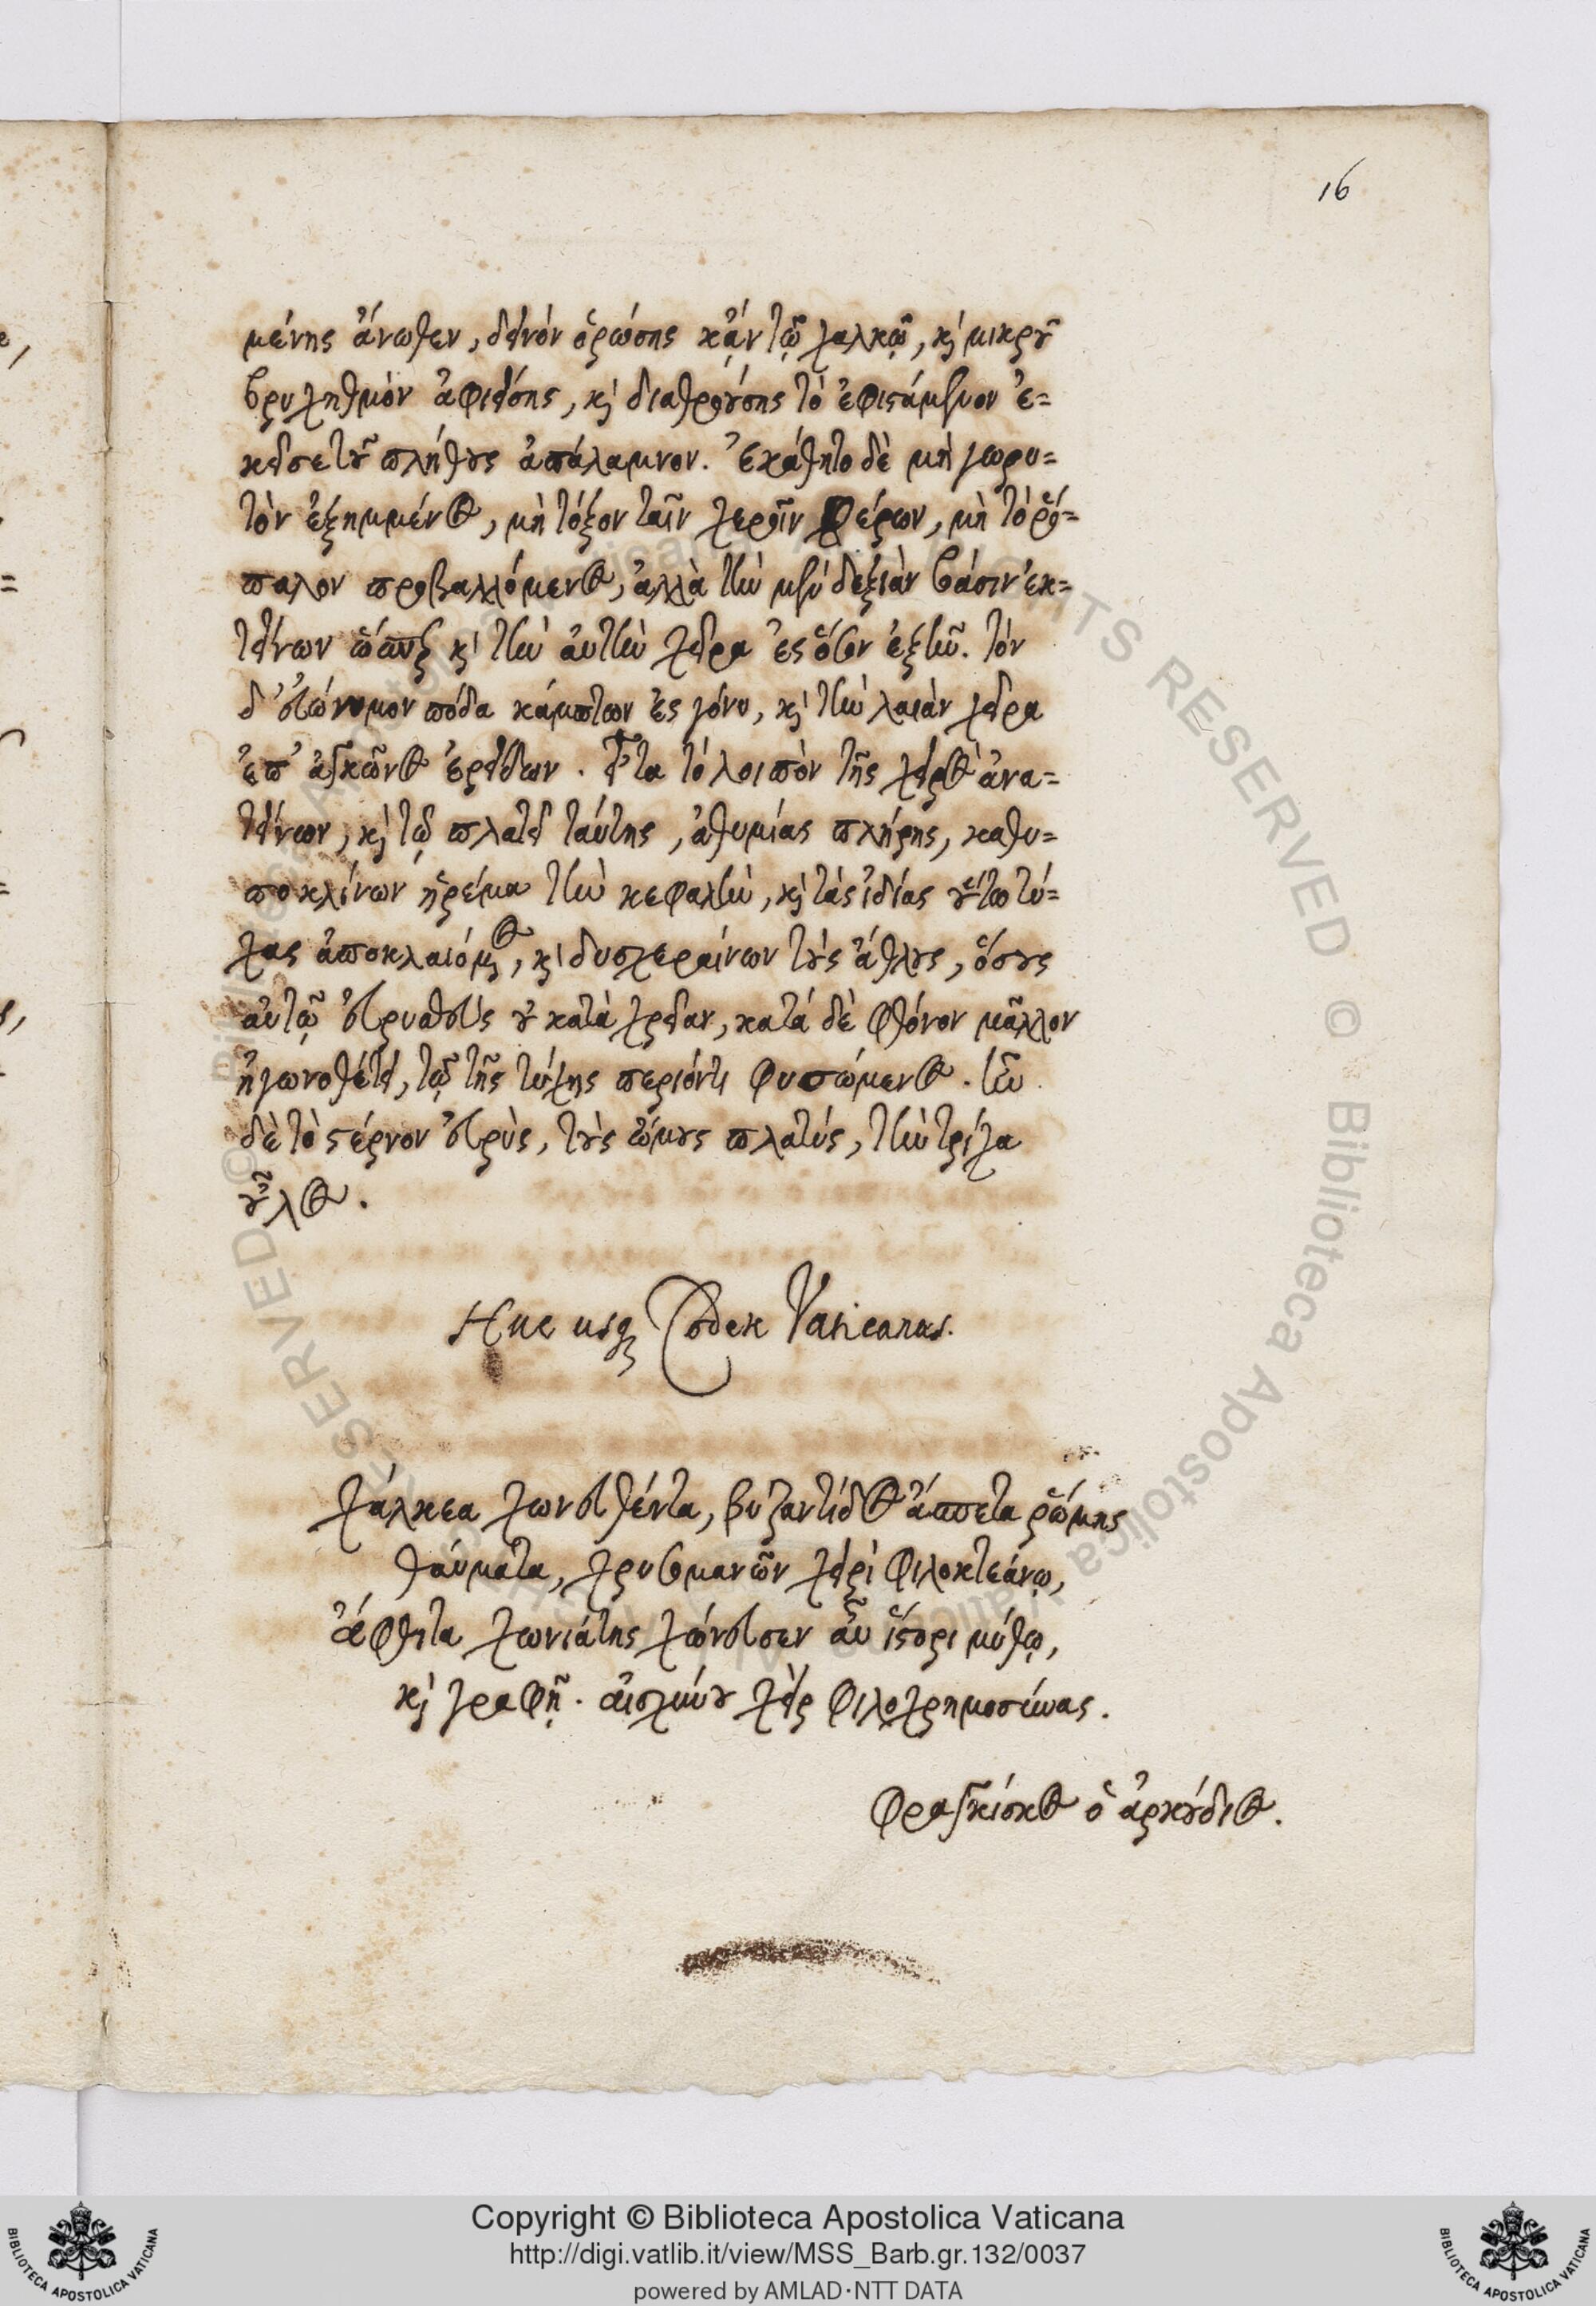 16
μένης ἄνωθεν, δεινὸν ὁρώσης κἂν τῷ χαλκῷ, καὶ μικροῦ
βρυχηθμὸν ἀφιείσης, καὶ διαθροούσης τὸ ἐφιστάμενον ἐ=
κεῖσε τοῦ πλήθους ἀπάλαμνον. Ἐκάθητο δὲ μὴ γωρυ=
τὸν ἐξημμένος, μὴ τόξον ταῖν χεροῖν φέρων, μὴ τὸ ῥό=
παλον προβαλλόμενος, ἀλλὰ τὴν μὲν δεξιὰν βάσιν ἐκ=
τείνων ὥσπερ καὶ τὴν αὐτὴν χεῖρα ἐς ὅσον ἐξῆν. τὸν
δ' εὐώνυμον πόδα κάμπτων ἐς γόνυ, καὶ τὴν λαιὰν χεῖρα
ἐπ' ἀγκῶνος ἐρείδων. εἶτα τὸ λοιπὸν τῆς χειρὸς ἀνα=
τείνων, καὶ τῷ πλατεῖ ταύτης, ἀθυμίας πλήρης, καθυ=
ποκλίνων ἠρέμα τὴν κεφαλὴν, καὶ τὰς ἰδίας οὕτω τύ=
χας ἀποκλαιόμενος, καὶ δυσχεραίνων τοὺς ἄθλους, ὅσους
αὐτῷ εὐρυσθεὺς οὐ κατὰ χρείαν, κατά δὲ φθόνον μᾶλλον
ἠγωνοθέτει, τῷ τῆς τύχης περιόντι φυσώμενος. ἦν
δὲ τὸ στέρνον εὐρὺς, τοὺς ὤμους πλατύς, τὴν τρίχα
οὖλος.
Huc usq Codex Vaticanus.
Χάλκεα χωνευθέντα, βυζαντίδος ἄσπετα ῥώμης
θαύματα, χρυσομανῶν χειρὶ φιλοκτεάνῳ,
ἄφθιτα χωνιάτης χώνευσεν αὖ ἵστορι μύθῳ,
καὶ γραφῇ. αἰσχύνου χεὶρ φιλοχρημοσύνας.
Φραγκίσκος ὁ ἀρκούδιος.
Copyright © Biblioteca Apostolica Vaticana
http://digi.vatlib.it/view/MSS_Barb.gr.132/0037
powered by AMLAD·NTT DATA